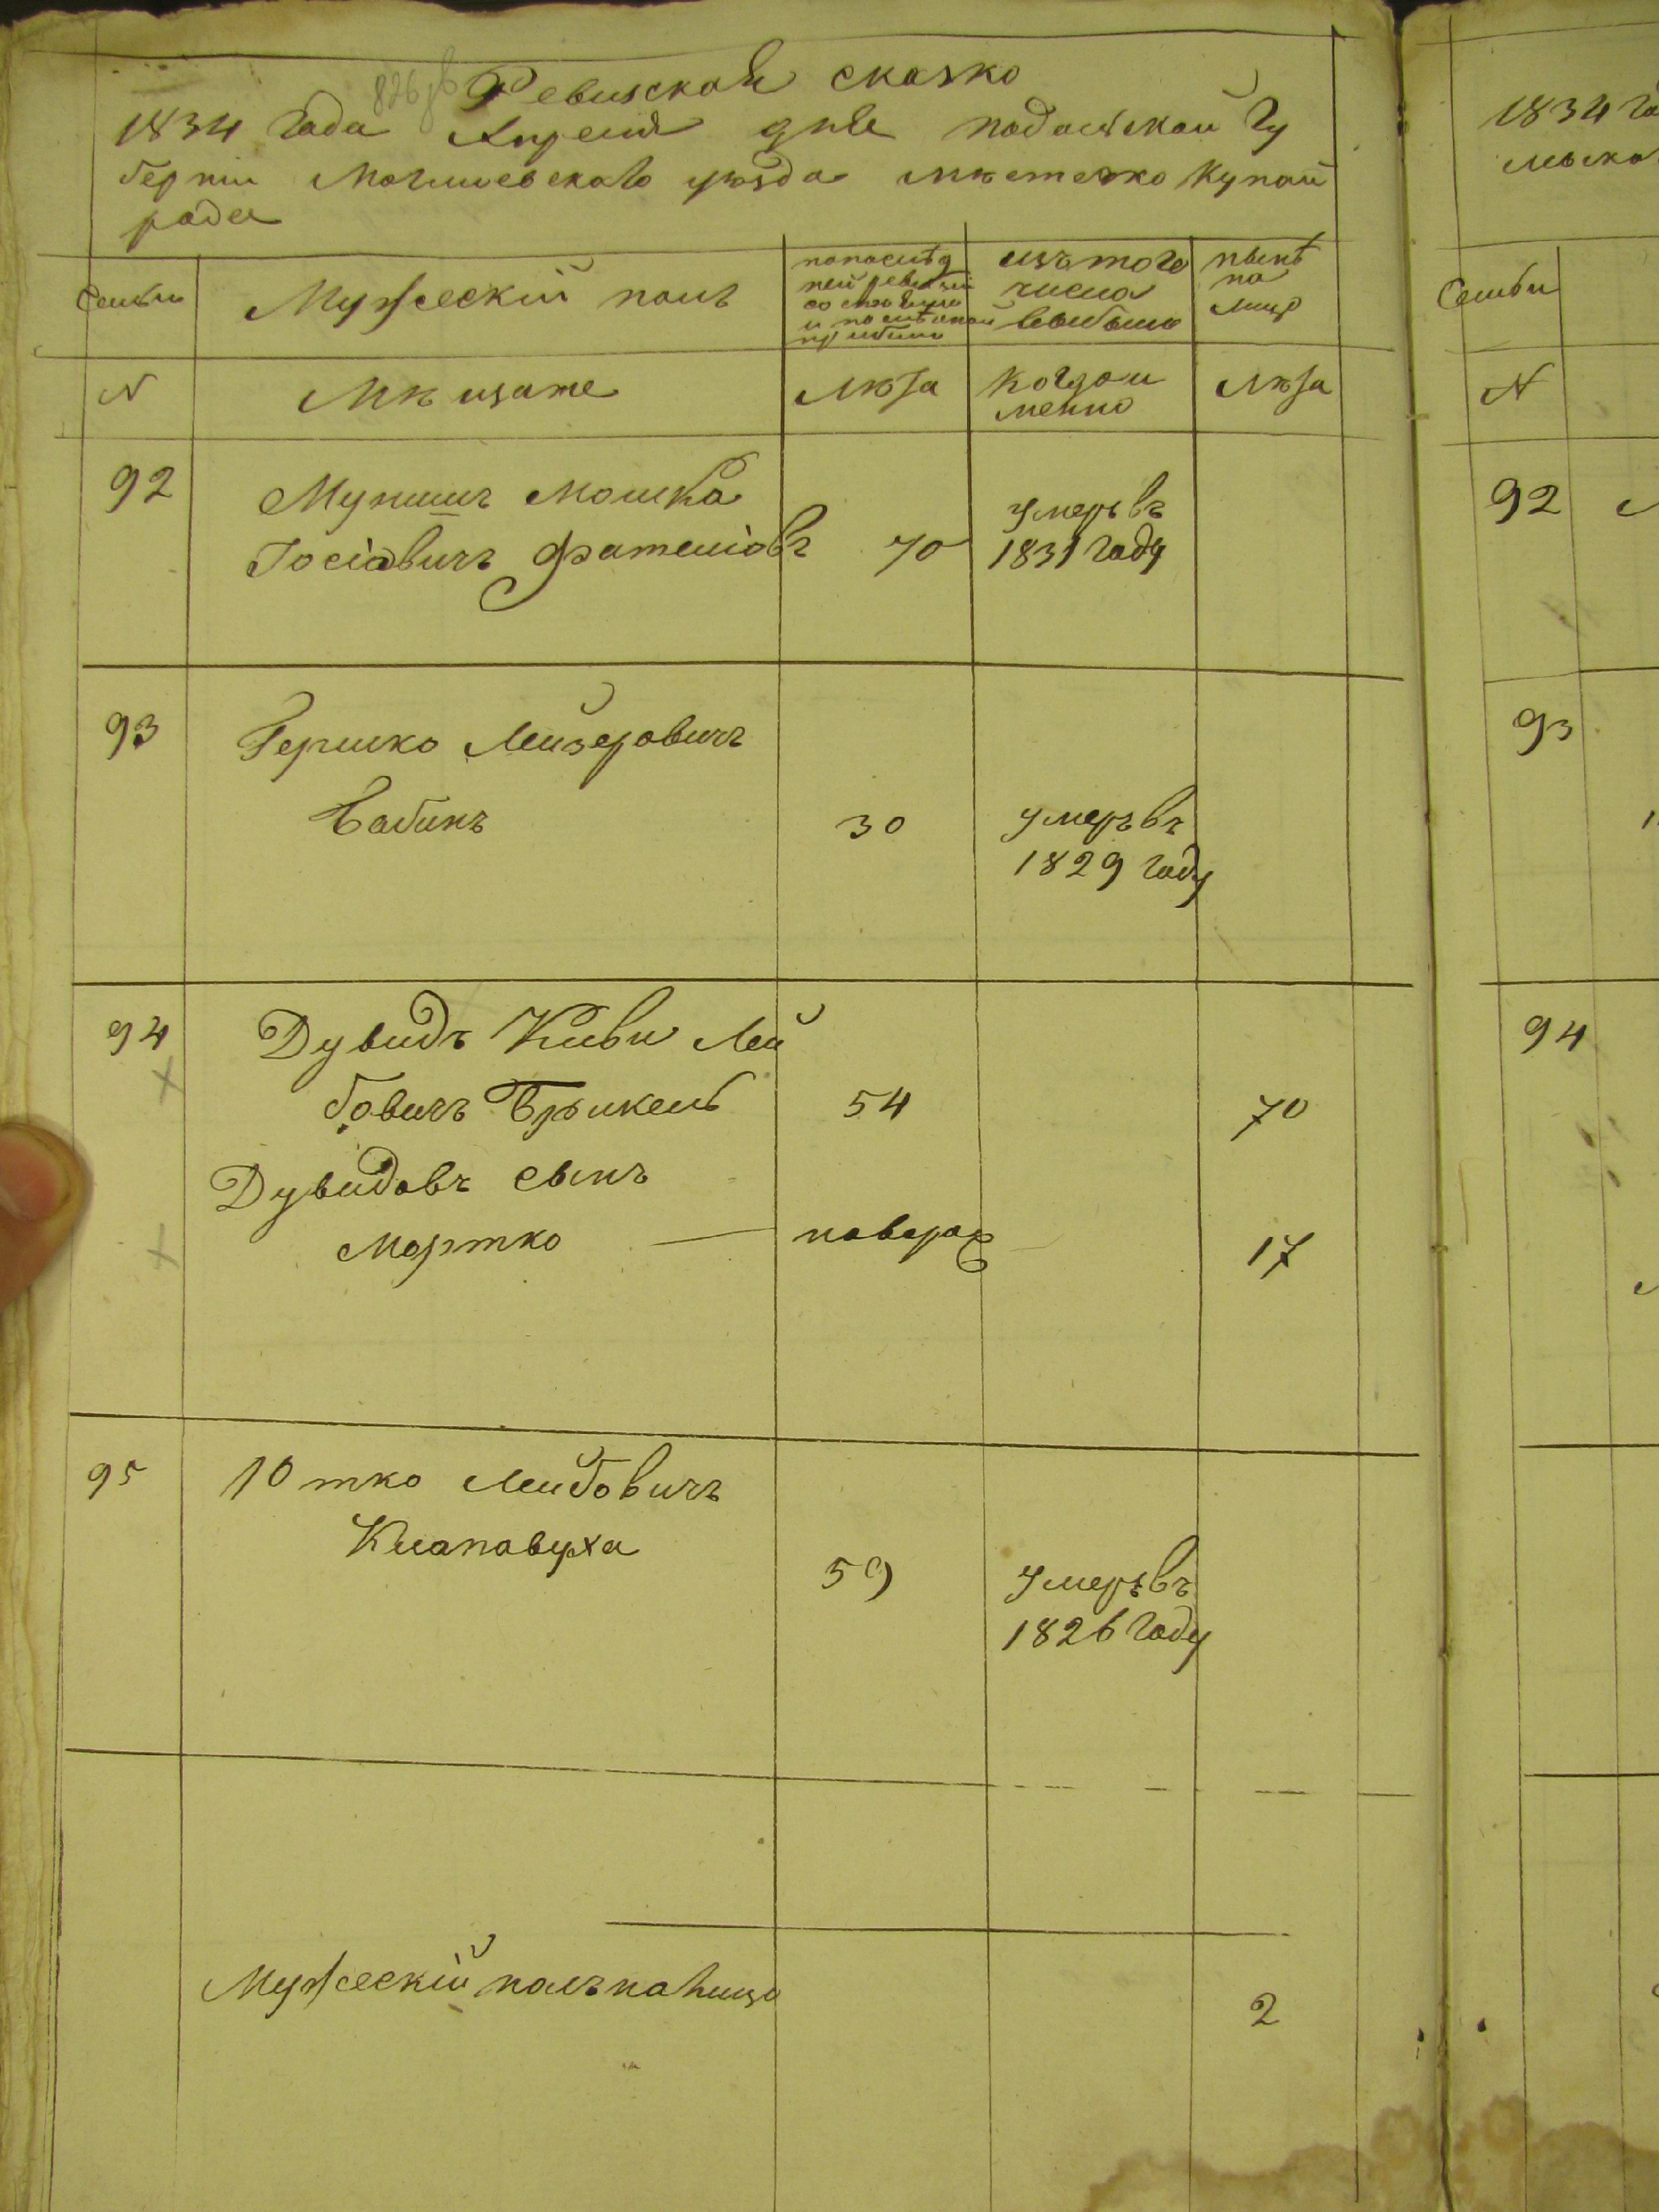 Ревизская сказка
1834 Года Апреля дня Подольской Гу
берніи Могилевскаго уѣзда мѣстечко Купай
рода
Семьи
Мужескій полъ
по послѣд
ней ревизіи
состояло
и послѣ оной
прибыло
изъ того
числа
выбыло
нынѣ
на
лицо
N
Мѣщане
Лѣта
Когда и
менно
Лѣта
92
Мунишъ Мошка
Іосіовичъ
70
умеръ въ
1831 Году
93
Гершко Лейзеровичъ
Бабинъ
30
умеръ въ
1829 году
94
Дувидъ Киви Лей
бовичъ
54
70
Дувидовъ сынъ
Мортко
17
95
Ютко Лейбовичъ
Клаповуха
59
умеръ въ
1826 Году
Мужескій полъ налицо
2
1834 Го
Семьи
N
92
93
94